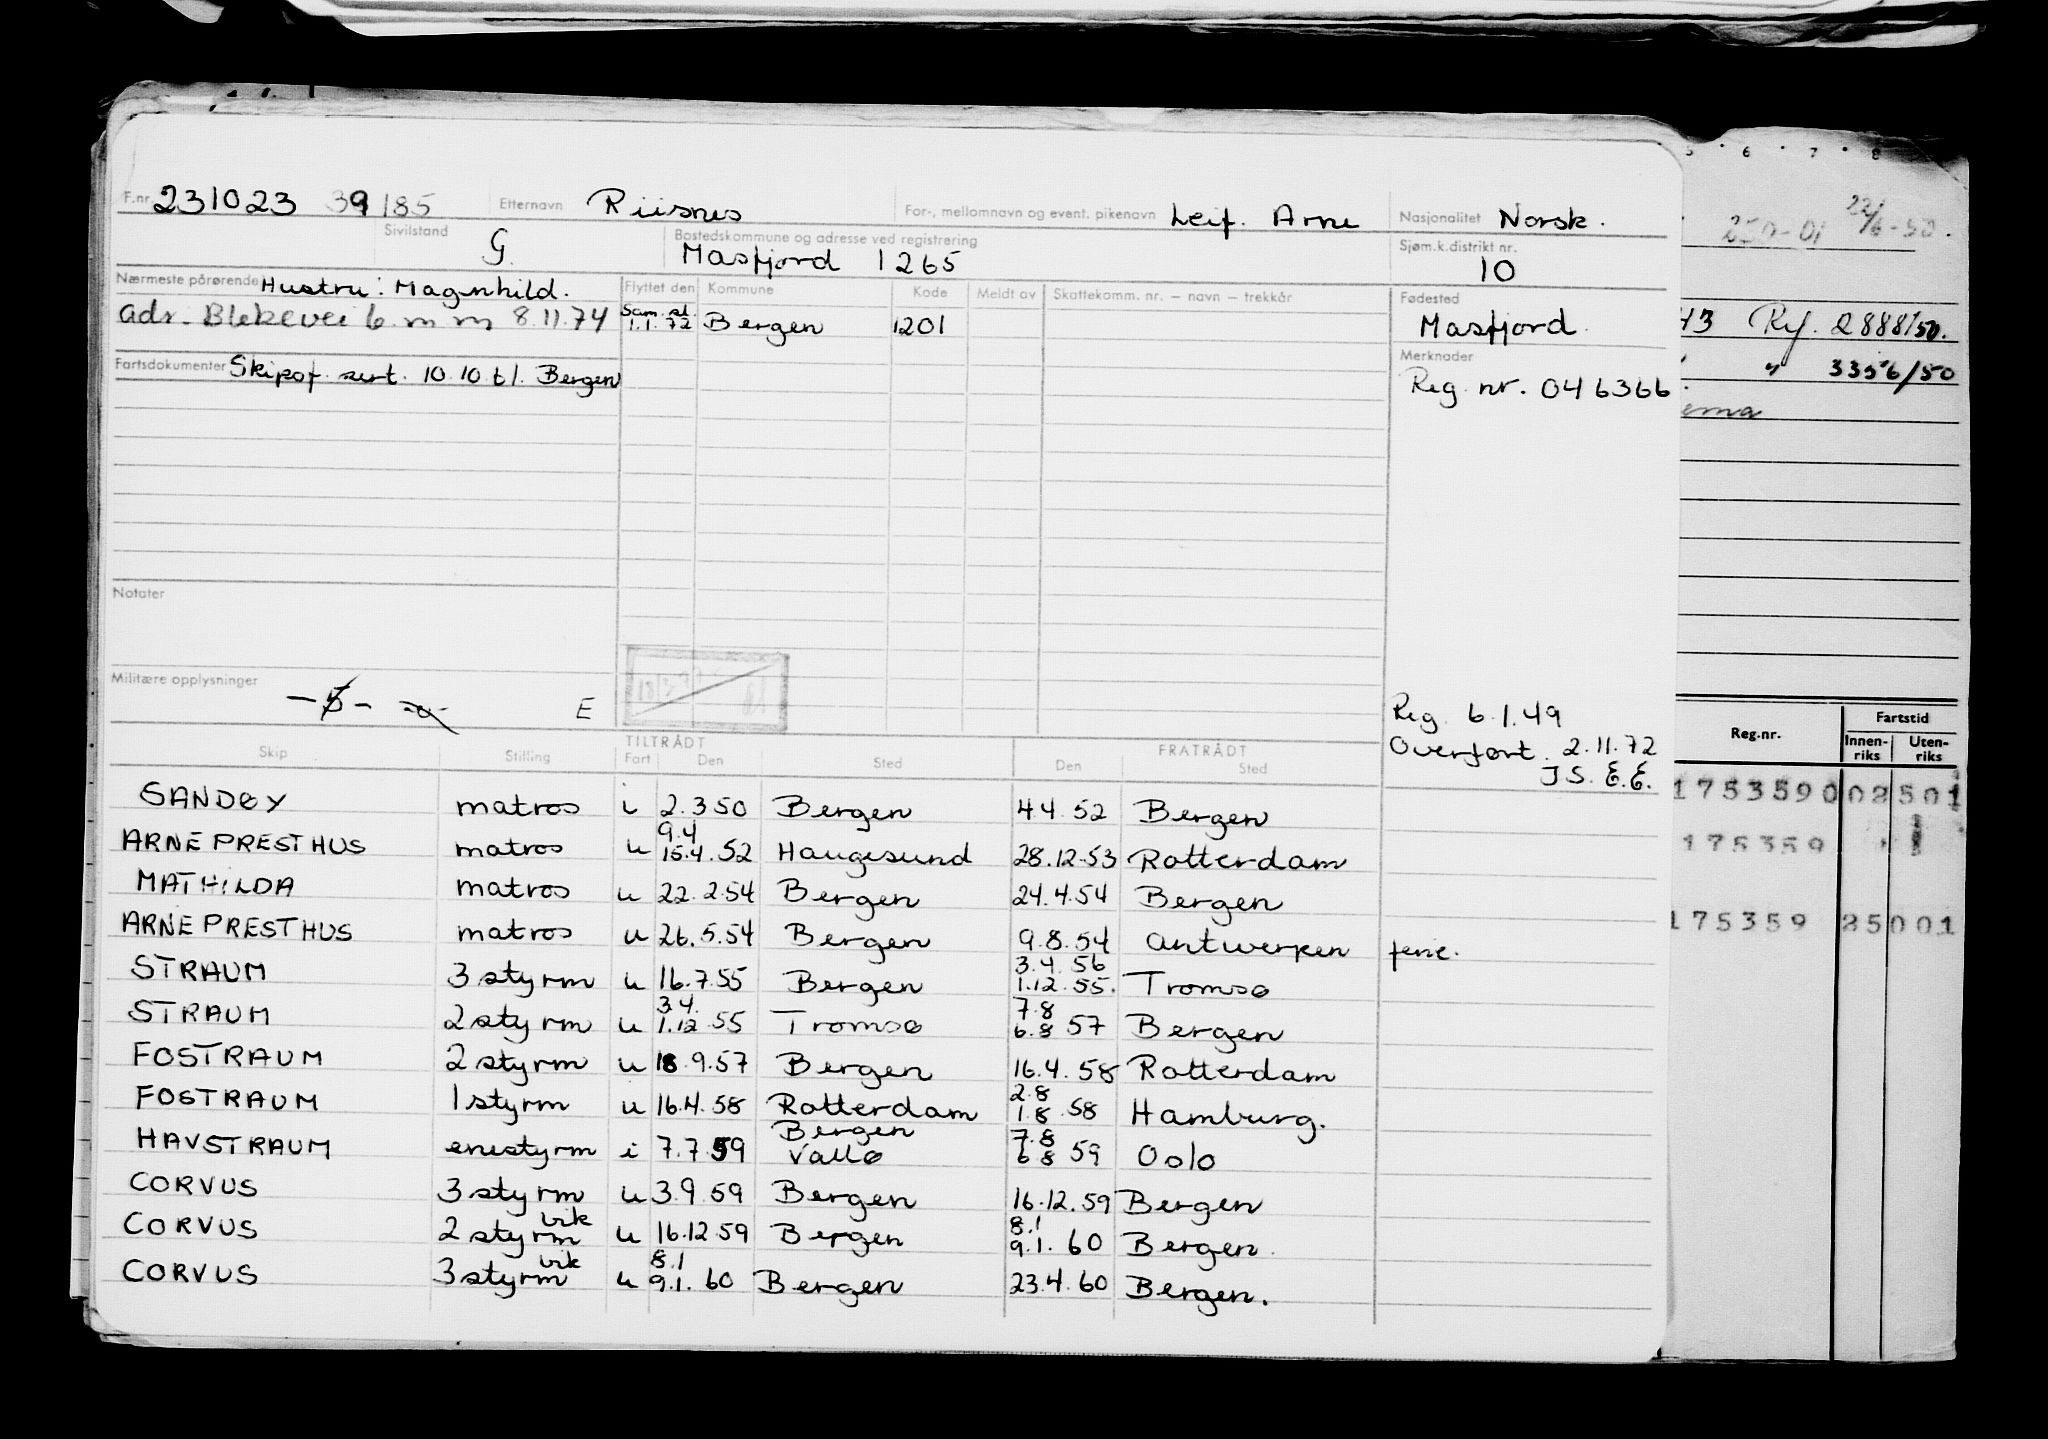 F.nr. 231023 39185 Etternavn Riisnes For-, mellomnavn og event. pikenavn Leif. Arne Nasjonalitet Norsk.
Sivilstand G. Bostedskommune og adresse ved registrering Masfjord 1265 Sjøm.k.distrikt nr. 10
Nærmeste pårørende Hustru: Magnhild. Flyttet den Kommune Kode Meldt av Skattekomm. nr. — navn — trekkår Fødested
adr. Blekevei 6. m m 8.11.74 Sam. sl. 1.1.72 Bergen 1201 Masfjord
Fartsdokumenter Skipsf. sert. 10.10.61. Bergen Merknader
Reg. nr. 046366.
Notater
Militære opplysninger E
Reg. 6.1.49
Overført. 2.11.72
J S. E. E.
TILTRÅDT FRATRÅDT
Skip Stilling Fart Den Sted Den Sted
SANDØY matros i 2.3 50 Bergen 4 4. 52 Bergen
9.4
ARNE PRESTHUS matros u 15.4. 52 Haugesund 28.12.53 Rotterdam
MATHILDA matros u 22. 2.54 Bergen 24.4.54 Bergen
ARNE PRESTHUS matros u 26.5.54 Bergen 9.8.54 Antwerpen ferie.
3.4. 56
STRAUM 3 styrm u 16.7.55 Bergen 1.12.55. Tromsø
3.4. 7.8
STRAUM 2 styrm u 1.12 55 Tromsø 6.8 57 Bergen
FOSTRAUM 2 styrm u 18.9.57 Bergen 16.4.58 Rotterdam
2.8
FOSTRAUM 1 styrm u 16.4.58 Rotterdam 1.8.58 Hamburg.
Bergen 7.8
HAVSTRAUM enestyrm i 7.7 59 Vallø 6 8 59 Oslo
CORVUS 3 styrm u 3.9.59 Bergen 16.12.59 Bergen
vik 8.1
CORVUS 2 styrm u 16.12 59 Bergen 9.1. 60 Bergen
vik 8.1
CORVUS 3 styrm u 9.1. 60 Bergen 23.4.60 Bergen.
5 6 7 8
250-01 22/6-50.
43 Rf. 2888/50.
" 3356/50
Reg.nr. Fartstid
Innen-riks Uten-riks
1753590 02 501
175359
175359 25001